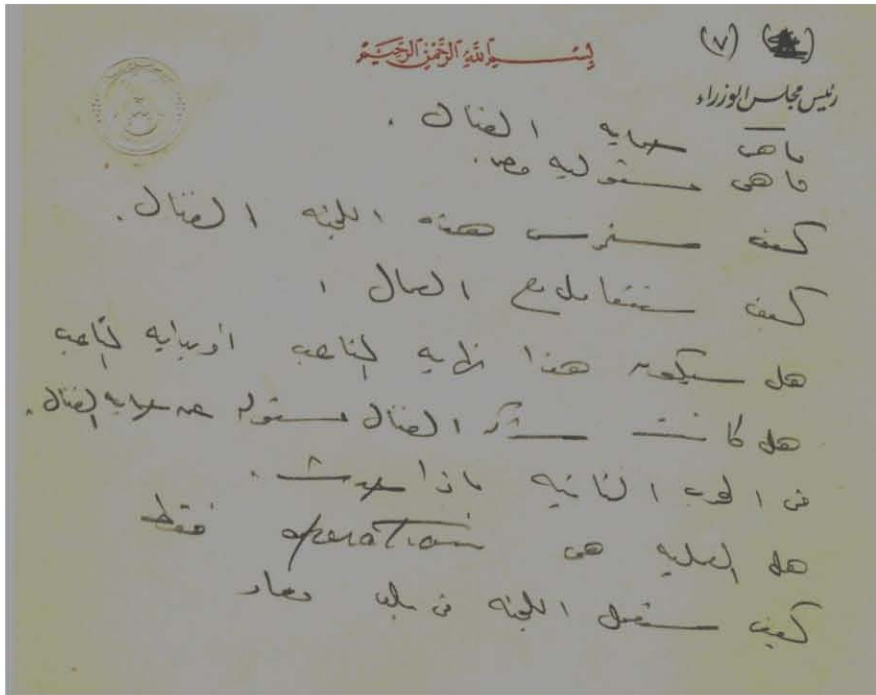 (٧)
بسم الله الرحمن الرحيم
رئيس مجلس الوزراء
ما هى حماية القنال .
ما هى مسئولية مصر .
كيف ستمرس هذه اللجنه القنال .
كيف سنتعامل مع العمال
هل سيكون هذا نهاية المتاعب او بداية المتاعب
هل كانت شركة القنال مسئوله عن حماية القنال .
فى الحرب الثانيه ماذا حدث .
هل العمليه هى operation فقط
كيف ستعمل اللجنه فى بلد معاد